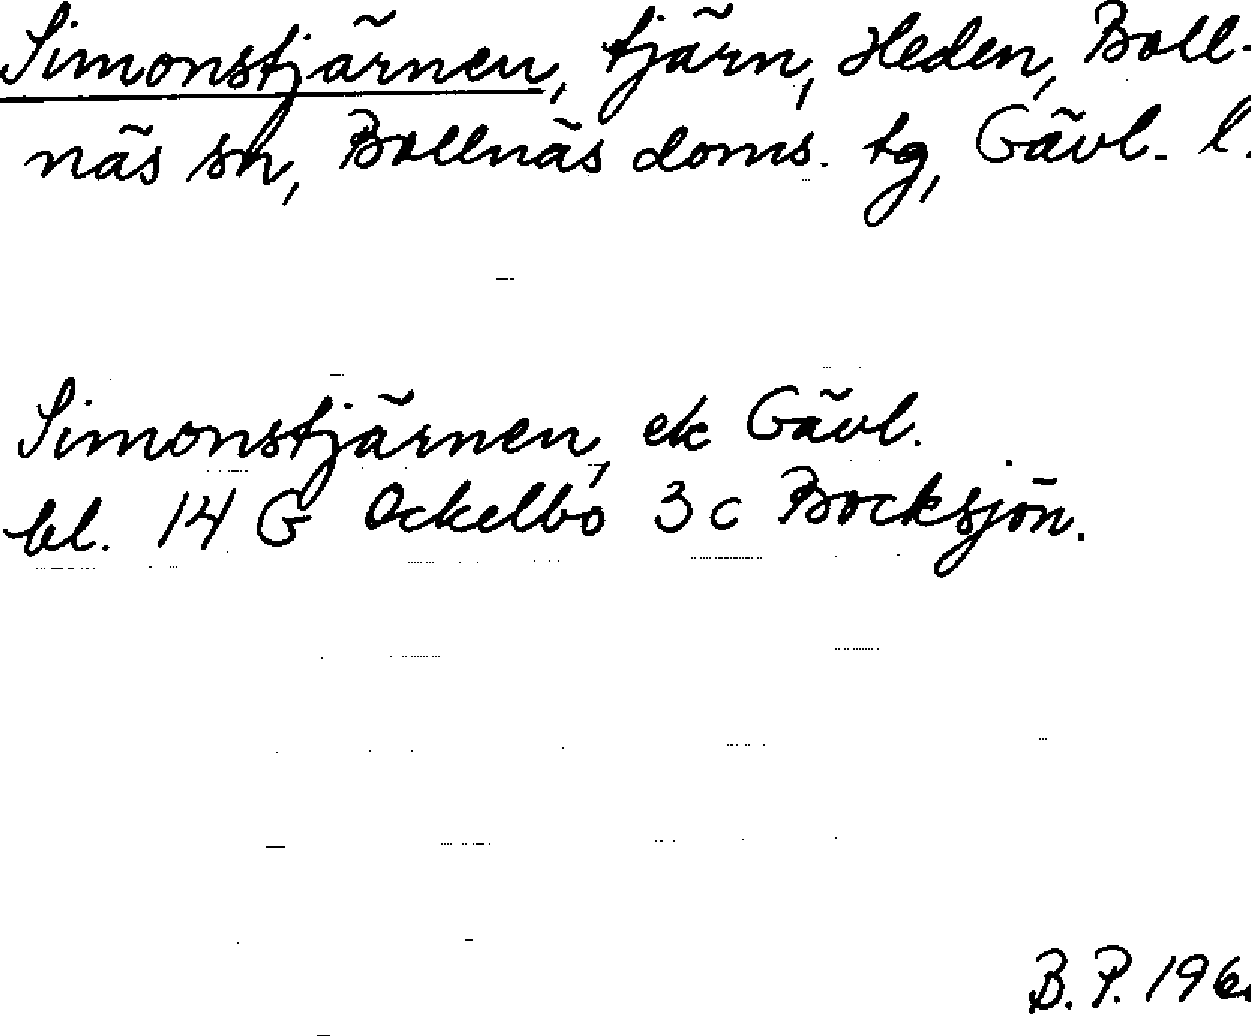 Simonstjärnen, tjärn, Heden, Boll-
näs sn, Bollnäs doms. tg, Gävl. l.
Simonstjärnen, ek Gävl.
bl. 14 G Ockelbo 3 c Bocksjön.
B. P.